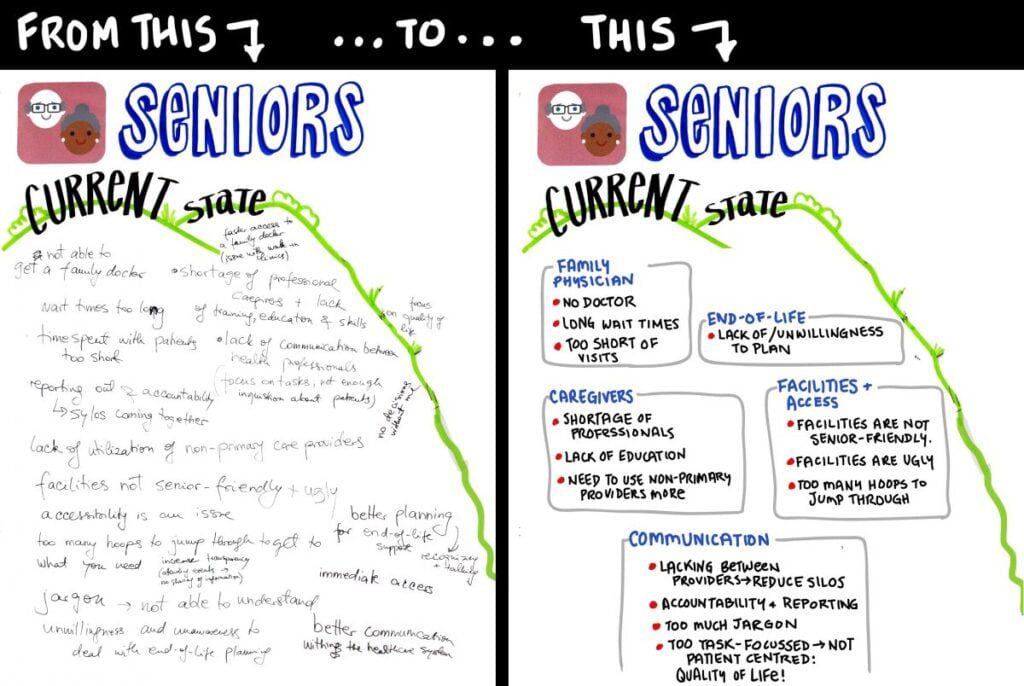 FROM THIS ... TO ... THIS
SENIORS
CURRENT STATE
not able to
get a family doctor
faster access to
a family doctor
(issue with walk-in
clinics)
• shortage of professional
caregivers + lack
of training, education & skills
wait times too long
focus
on quality of
life
time spent with patients
too short
• lack of communication between
health professionals
(focus on tasks, not enough
inquisition about patients)
no decisions
without me
reporting out & accountability
↳ sylos coming together
lack of utilization of non-primary care providers
facilities not senior-friendly + ugly
accessibility is an issue
too many hoops to jump through to get to
what you need
increase transparency
no sharing of information)
better planning
for end-of-life
support
recognizing
+ talking
immediate access
jargon → not able to understand
unwillingness and unawareness to
deal with end-of-life planning
better communication
withing the healthcare system
SENIORS
CURRENT STATE
FAMILY
PHYSICIAN
• NO DOCTOR
• LONG WAIT TIMES
• TOO SHORT OF
VISITS
END-OF-LIFE
• LACK OF/UNWILLINGNESS
TO PLAN
CAREGIVERS
• SHORTAGE OF
PROFESSIONALS
• LACK OF EDUCATION
• NEED TO USE NON-PRIMARY
PROVIDERS MORE
FACILITIES +
ACCESS
• FACILITIES ARE NOT
SENIOR-FRIENDLY.
• FACILITIES ARE UGLY
• TOO MANY HOOPS TO
JUMP THROUGH
COMMUNICATION
• LACKING BETWEEN
PROVIDERS → REDUCE SILOS
• ACCOUNTABILITY + REPORTING
• TOO MUCH JARGON
• TOO TASK-FOCUSSED → NOT
PATIENT CENTRED:
QUALITY OF LIFE!